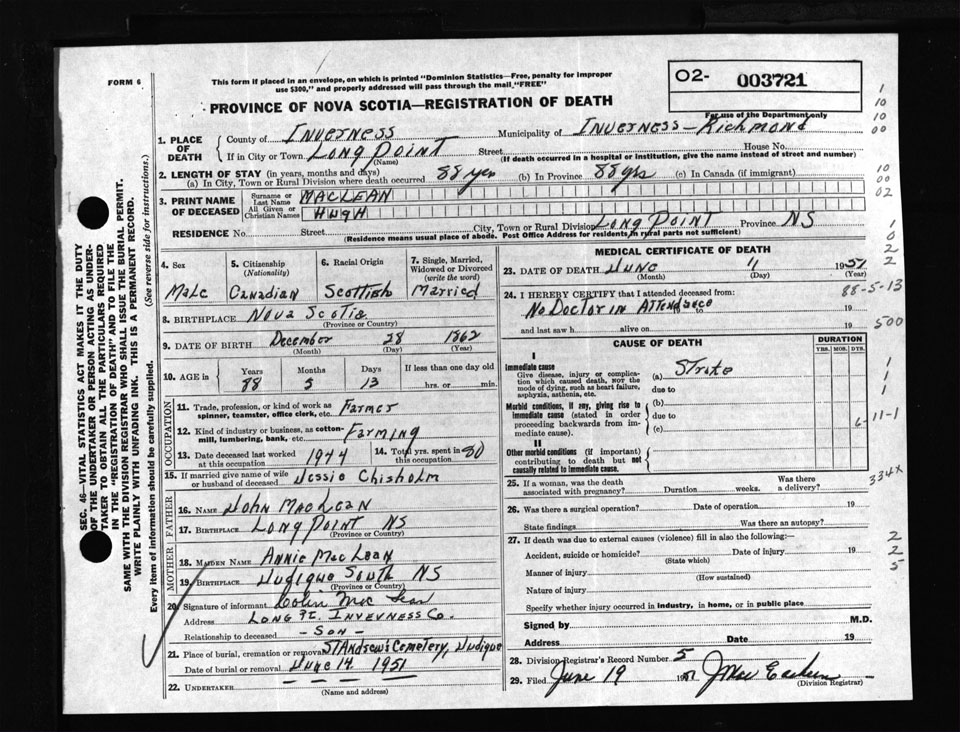 FORM 6
This form if placed in an envelope, on which is printed "Dominion Statistics—Free, penalty for improper
use $300," and properly addressed will pass through the mail "FREE"
O2- 003721
For use of the Department only
PROVINCE OF NOVA SCOTIA—REGISTRATION OF DEATH
SEC. 46—VITAL STATISTICS ACT MAKES IT THE DUTY
OF THE UNDERTAKER OR PERSON ACTING AS UNDER-
TAKER TO OBTAIN ALL THE PARTICULARS REQUIRED
IN THE "REGISTRATION OF DEATH" AND TO FILE THE
SAME WITH THE DIVISION REGISTRAR WHO SHALL ISSUE THE BURIAL PERMIT.
WRITE PLAINLY WITH UNFADING INK. THIS IS A PERMANENT RECORD.
Every item of information should be carefully supplied. (See reverse side for instructions.)
1. PLACE OF DEATH
County of Inverness Municipality of Inverness - Richmond
If in City or Town Long Point Street House No.
(Name) (If death occurred in a hospital or institution, give the name instead of street and number)
2. LENGTH OF STAY (in years, months and days)
(a) In City, Town or Rural Division where death occurred 88 yrs (b) In Province 88 yrs (c) In Canada (if immigrant)
3. PRINT NAME OF DECEASED
Surname or Last Name MACLEAN
All Given or Christian Names HUGH
RESIDENCE No. Street City, Town or Rural Division Long Point Province NS
(Residence means usual place of abode. Post Office Address for residents in rural parts not sufficient)
4. Sex Male
5. Citizenship (Nationality) Canadian
6. Racial Origin Scottish
7. Single, Married, Widowed or Divorced (write the word) Married
8. BIRTHPLACE Nova Scotia
(Province or Country)
9. DATE OF BIRTH December 28 1862
(Month) (Day) (Year)
10. AGE in Years 88 Months 5 Days 13 If less than one day old hrs. or min.
OCCUPATION
11. Trade, profession, or kind of work as spinner, teamster, office clerk, etc. Farmer
12. Kind of industry or business, as cotton-mill, lumbering, bank, etc. Farming
13. Date deceased last worked at this occupation 1944
14. Total yrs. spent in this occupation 80
15. If married give name of wife or husband of deceased Jessie Chisholm
FATHER
16. NAME John MacLean
17. BIRTHPLACE Long Point NS
(Province or Country)
MOTHER
18. MAIDEN NAME Annie MacLean
19. BIRTHPLACE Judique South NS
(Province or Country)
20. Signature of informant Colin MacLean
Address Long Pt. Inverness Co.
Relationship to deceased - Son -
21. Place of burial, cremation or removal St Andrew's Cemetery, Judique
Date of burial or removal June 14 1951
22. UNDERTAKER — — — —
(Name and address)
MEDICAL CERTIFICATE OF DEATH
23. DATE OF DEATH June 11 1951
(Month) (Day) (Year)
24. I HEREBY CERTIFY that I attended deceased from:
No Doctor in Attendance 19 to 19
and last saw h alive on 19
CAUSE OF DEATH
DURATION
YRS. MOS. DYS.
I
Immediate cause
Give disease, injury or complication which caused death, NOT the mode of dying, such as heart failure, asphyxia, asthenia, etc.
(a) Stroke
due to
Morbid conditions, if any, giving rise to immediate cause (stated in order proceeding backwards from immediate cause).
(b)
due to
(c)
6-
II
Other morbid conditions (if important) contributing to death but not causally related to immediate cause.
25. If a woman, was the death associated with pregnancy? Duration weeks. Was there a delivery?
26. Was there a surgical operation? Date of operation 19
State findings Was there an autopsy?
27. If death was due to external causes (violence) fill in also the following:—
Accident, suicide or homicide? Date of injury 19
(State which)
Manner of injury
(How sustained)
Nature of injury
Specify whether injury occurred in industry, in home, or in public place
Signed by M.D.
Address Date 19
28. Division Registrar's Record Number 5
29. Filed June 19 1951 J Mac Eachern
(Division Registrar)
1
10
10
00
10
00
02
1
0
2
2
88-5-13
500
1
1
1
11-1
334x
2
2
5